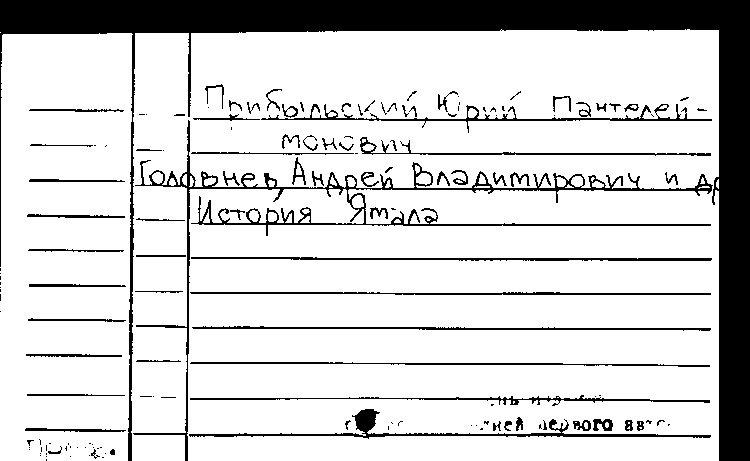 Прибыльский, Юрий Пантелей-
монович
Головнев, Андрей Владимирович и др
История Ямала
первого